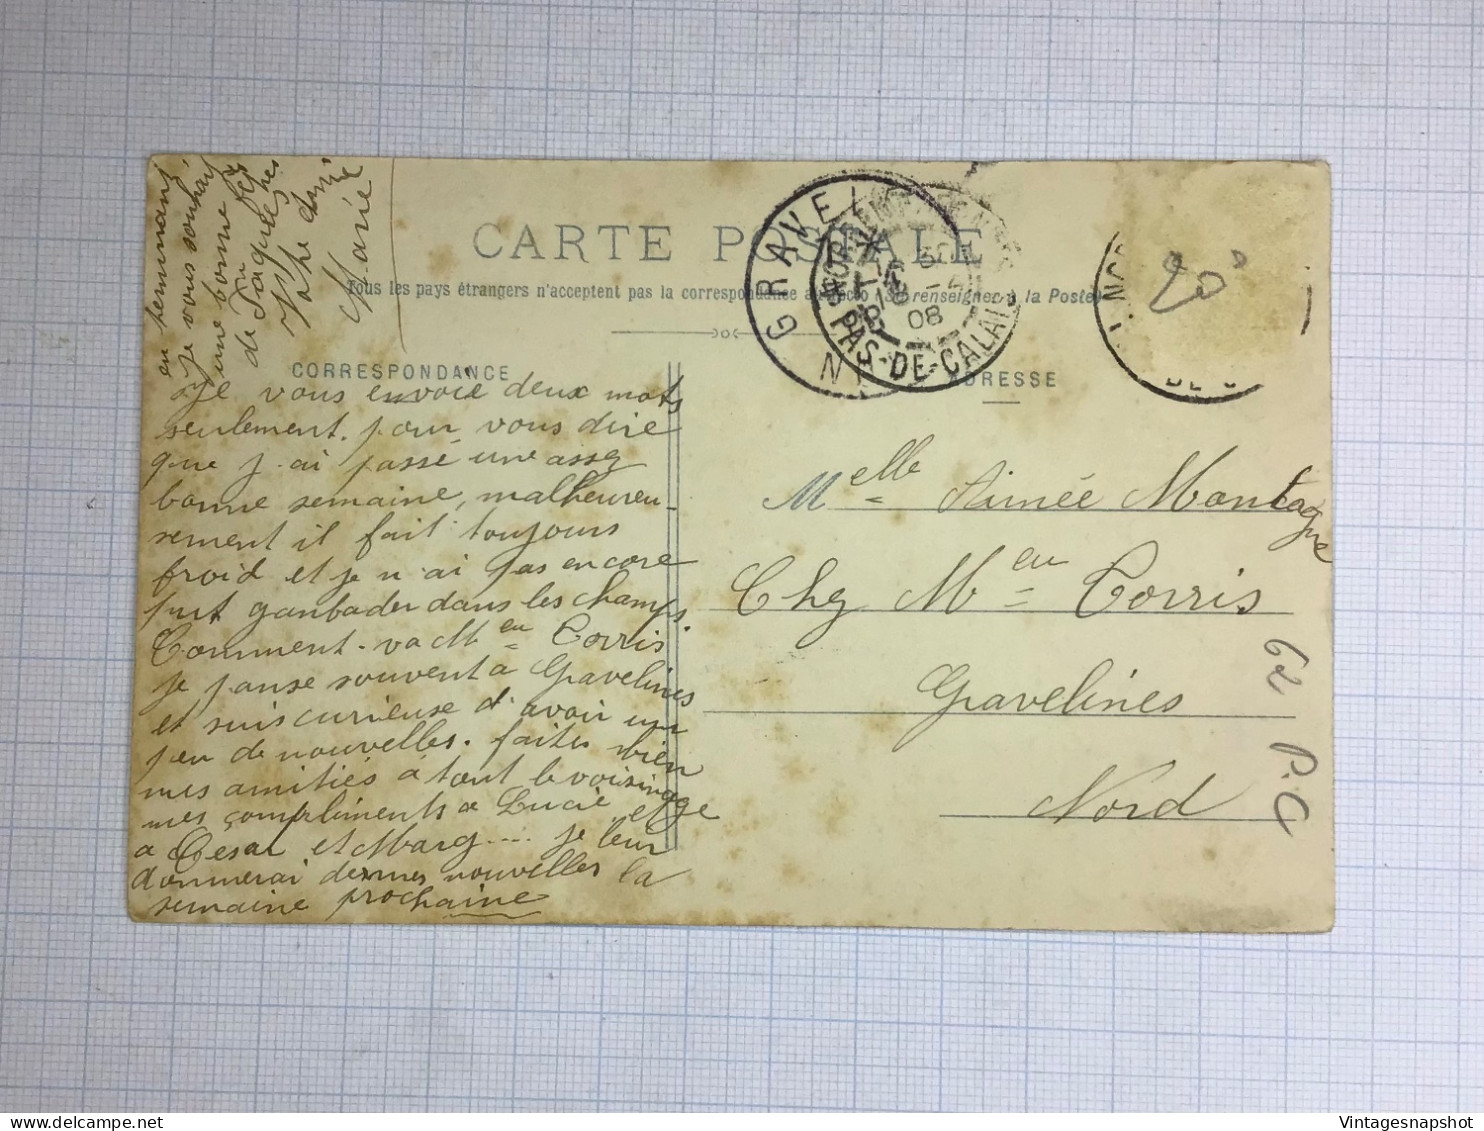 CARTE POSTALE
Tous les pays étrangers n'acceptent pas la correspondance au recto (Se renseigner à la Poste)
CORRESPONDANCE
ADRESSE
Je vous envoie deux mots
seulement. pour vous dire
que j'ai passé une assez
bonne semaine, malheureu-
sement il fait toujours
froid et je n'ai pas encore
put ganbader dans les champs.
Comment. va Meu Torris
je panse souvent à Gravelines
et suis curieuse d'avoir un
peu de nouvelles. faites bien
mes amitiés à tout le voisinage
mes compliments a Lucie et
a Cesar et Marg.... je leur
donnerai de mes nouvelles la
semaine prochaine
en terminant
je vous souhait
une bonne
de Pâques
Votre Amie
Marie
Melle Aimée Montagne
Chez Meu Torris
Gravelines
Nord
GRAVELI
PAS-DE-CALAIS
08
20
62 P.C
Vintagesnapshot